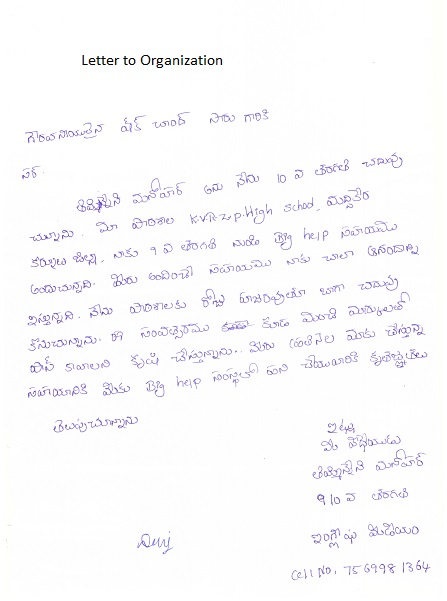 Letter to Organization
గౌరవనీయులైన షేక్ చాంద్ సారు గారికి
సర్.
మనోహర్ అను నేను 10 వ తరగతి చదువు
చున్నాను. మా పాఠశాల K.V.R.Z.P.High School, మద్దికెర
కర్నూలు జిల్లా, నాకు 9 వ తరగతి నుండి Big help సహాయము
అందుచున్నది. మీరు అందించే సహాయము నాకు చాలా ఆనందాన్ని
ఇస్తున్నది. నేను పాఠశాలకు రోజు హాజరవుతూ బాగా చదువు
కొనుచున్నాను. ఈ సంవత్సరము కూడ మంచి మార్కులతో
పాస్ కావాలని కృషి చేస్తున్నాను.. మీరు ప్రతినెల మాకు చేస్తున్న
సహాయానికి మీకు Big help సంస్థలో పని చేయువారికి కృతజ్ఞతలు
తెలుపుచున్నాను
ఇట్లు
మీ
మనోహర్
9/10 వ తరగతి
ఇంగ్లీషు మీడియం
Cell No. 7569981364